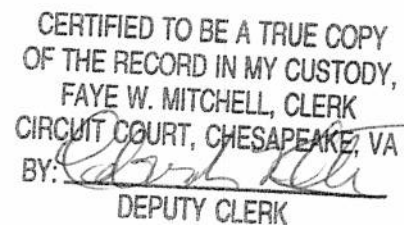 CERTIFIED TO BE A TRUE COPY
OF THE RECORD IN MY CUSTODY,
FAYE W. MITCHELL, CLERK
CIRCUIT COURT, CHESAPEAKE, VA
BY:
DEPUTY CLERK